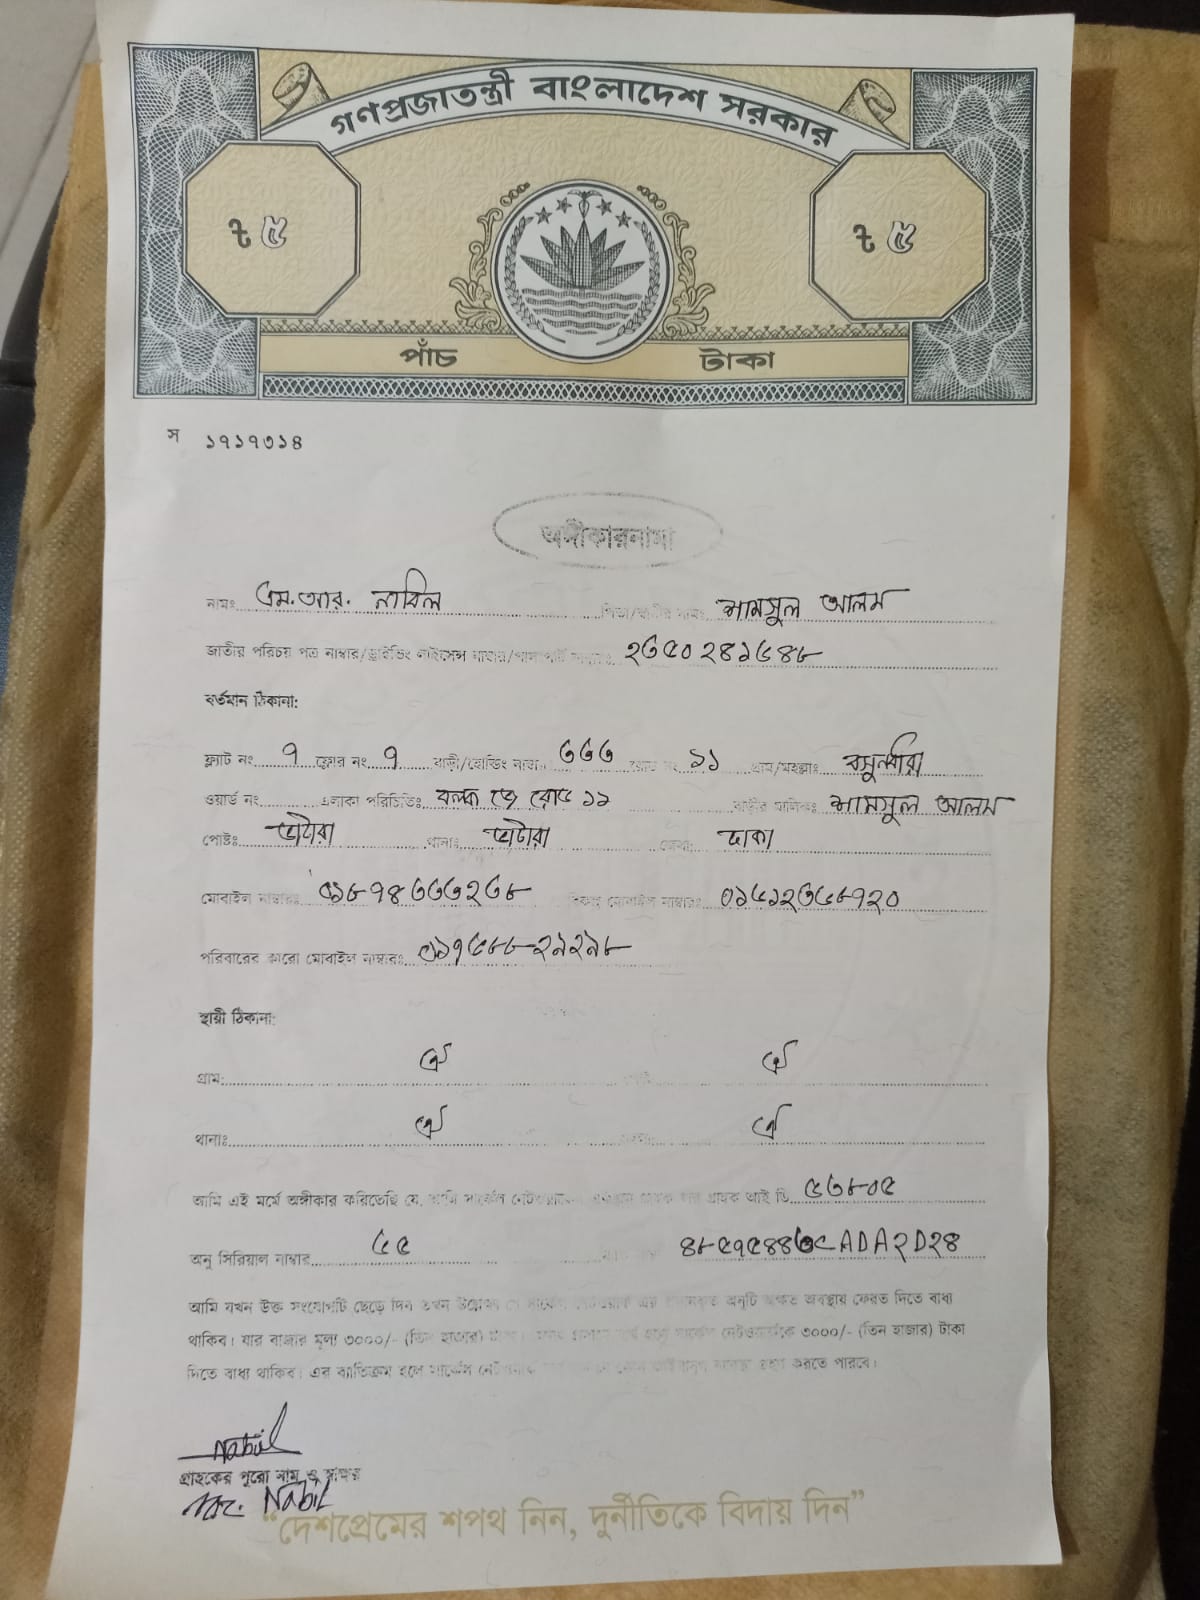 গণপ্রজাতন্ত্রী বাংলাদেশ সরকার
৳ ৫ ৳ ৫
পাঁচ টাকা
স ১৭১৭৩১৪
অঙ্গীকারনামা
নামঃ এম.আর. নাবিল পিতা/স্বামীর নামঃ শামসুল আলম
জাতীয় পরিচয় পত্র নাম্বার/ড্রাইভিং লাইসেন্স নাম্বার/পাসপোর্ট নাম্বারঃ ২৩৫০২৪১৬৪৮
বর্তমান ঠিকানা:
ফ্ল্যাট নং ৭ ফ্লোর নং ৭ বাড়ী/হোল্ডিং নাম্বার ৩৩৩ রোড নং ১১ গ্রাম/মহল্লাঃ বসুন্ধরা
ওয়ার্ড নং এলাকা পরিচিতিঃ ব্লক জে রোড ১১ বাড়ীর মালিকঃ শামসুল আলম
পোষ্টঃ ভাটারা থানাঃ ভাটারা জেলাঃ ঢাকা
মোবাইল নাম্বারঃ ০১৮৭৪৩৩৩২৩৮ বিকল্প মোবাইল নাম্বারঃ
পরিবারের কারো মোবাইল নাম্বারঃ
স্থায়ী ঠিকানা:
গ্রাম: ঐ ঐ
থানাঃ ঐ ঐ
আমি এই মর্মে অঙ্গীকার করিতেছি যে, আমি সার্কেল নেটওয়ার্ক গ্রাহক আই ডি ৫৩৮০৫
অনু সিরিয়াল নাম্বার
আমি যখন উক্ত সংযোগটি ছেড়ে দিব তখন সার্কেল নেটওয়ার্ক এর অনুটি অক্ষত অবস্থায় ফেরত দিতে বাধ্য
থাকিব। যার বাজার মূল্য ৩০০০/- (তিন হাজার) টাকা। সার্কেল নেটওয়ার্ককে ৩০০০/- (তিন হাজার) টাকা
দিতে বাধ্য থাকিব। এর ব্যতিক্রম হলে সার্কেল নেটওয়ার্ক করতে পারবে।
Nabil
গ্রাহকের পুরো নাম ও স্বাক্ষর
Nabil
“দেশপ্রেমের শপথ নিন, দুর্নীতিকে বিদায় দিন”